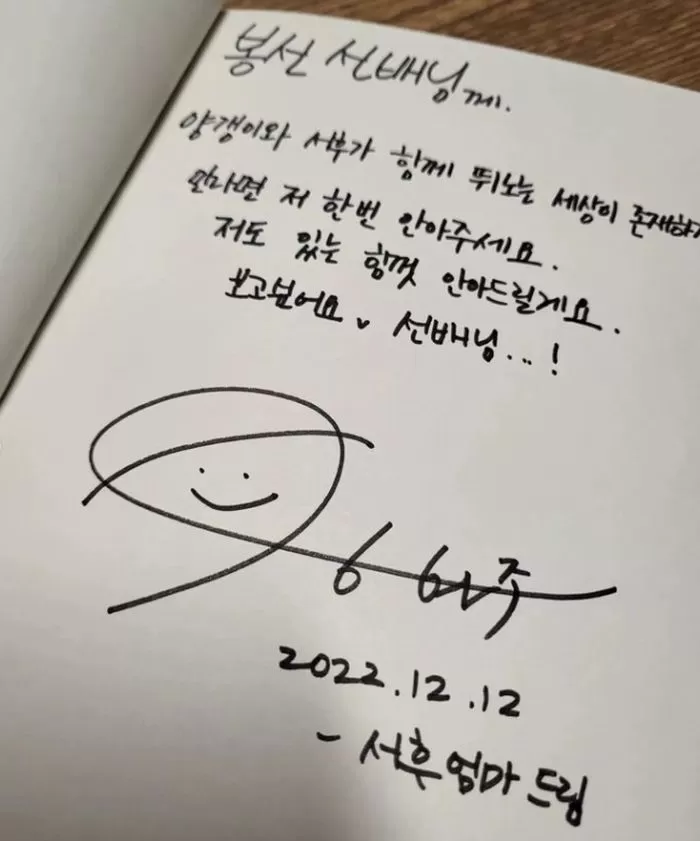 봉선 선배님께.
양갱이와 서후가 함께 뛰노는 세상이 존재하
만나면 저 한번 안아주세요.
저도 있는 힘껏 안아드릴게요.
보고싶어요 선배님...!
2022.12.12
- 서후 엄마 드림